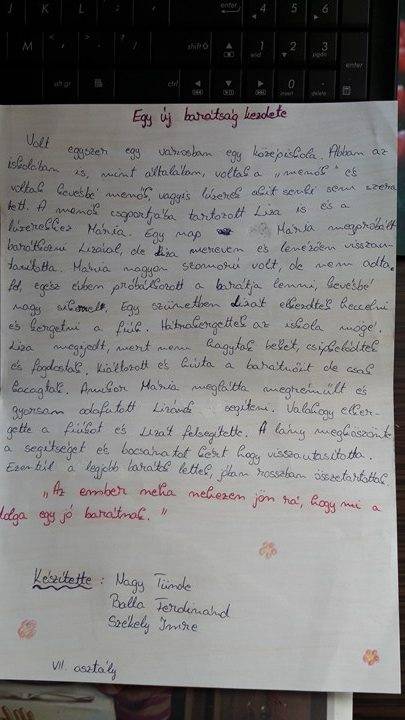 J K L enter 4 5 6
M shift 1 2 3 pgdn
alt gr ctrl 0 insert . delete enter
Egy új barátság kezdete
Volt egyszer egy városban egy középiskola. Abban az
iskolában is, mint általában, voltak a „menők” és
voltak kevésbé menők, vagyis lúzerek akit senki sem szere
tett. A menők csoportjába tartozott Liza is és a
lúzerekhez Mária. Egy nap Mária megpróbált
barátkozni Lizával, de Liza mereven és lenézően visszau
tasította. Mária nagyon szomorú volt, de nem adta
fel, egész évben próbálkozott a barátja lenni, kevésbé
nagy sikerrel. Egy szünetben Lizát elkezdték heccelni
és kergetni a fiúk. Hátrakergették az iskola mögé.
Liza megijedt, mert nem hagyták békét, csipkelődtek
és fogdosták. Kiáltozott és hívta a barátnőit de csak
kacagtak. Amikor Mária meglátta megrémült és
gyorsan odafutott Lizának segíteni. Valahogy elker-
gette a fiúkat és Lizát felsegítette. A lány megköszönte
a segítséget és bocsánatot kért hogy visszautasította.
Ezentúl a legjobb barátok lettek, jóban rosszban összetartottak.
„Az ember néha nehezen jön rá, hogy mi a
dolga egy jó barátnak.”
Készítette : Nagy Tünde
Balla Ferdinánd
Székely Imre
VII. osztály